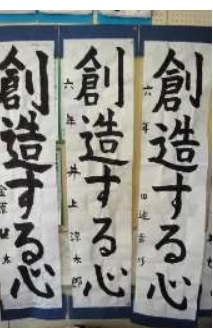 創造する心
六年
創造する心
六年 井上涼太郎
創造する心